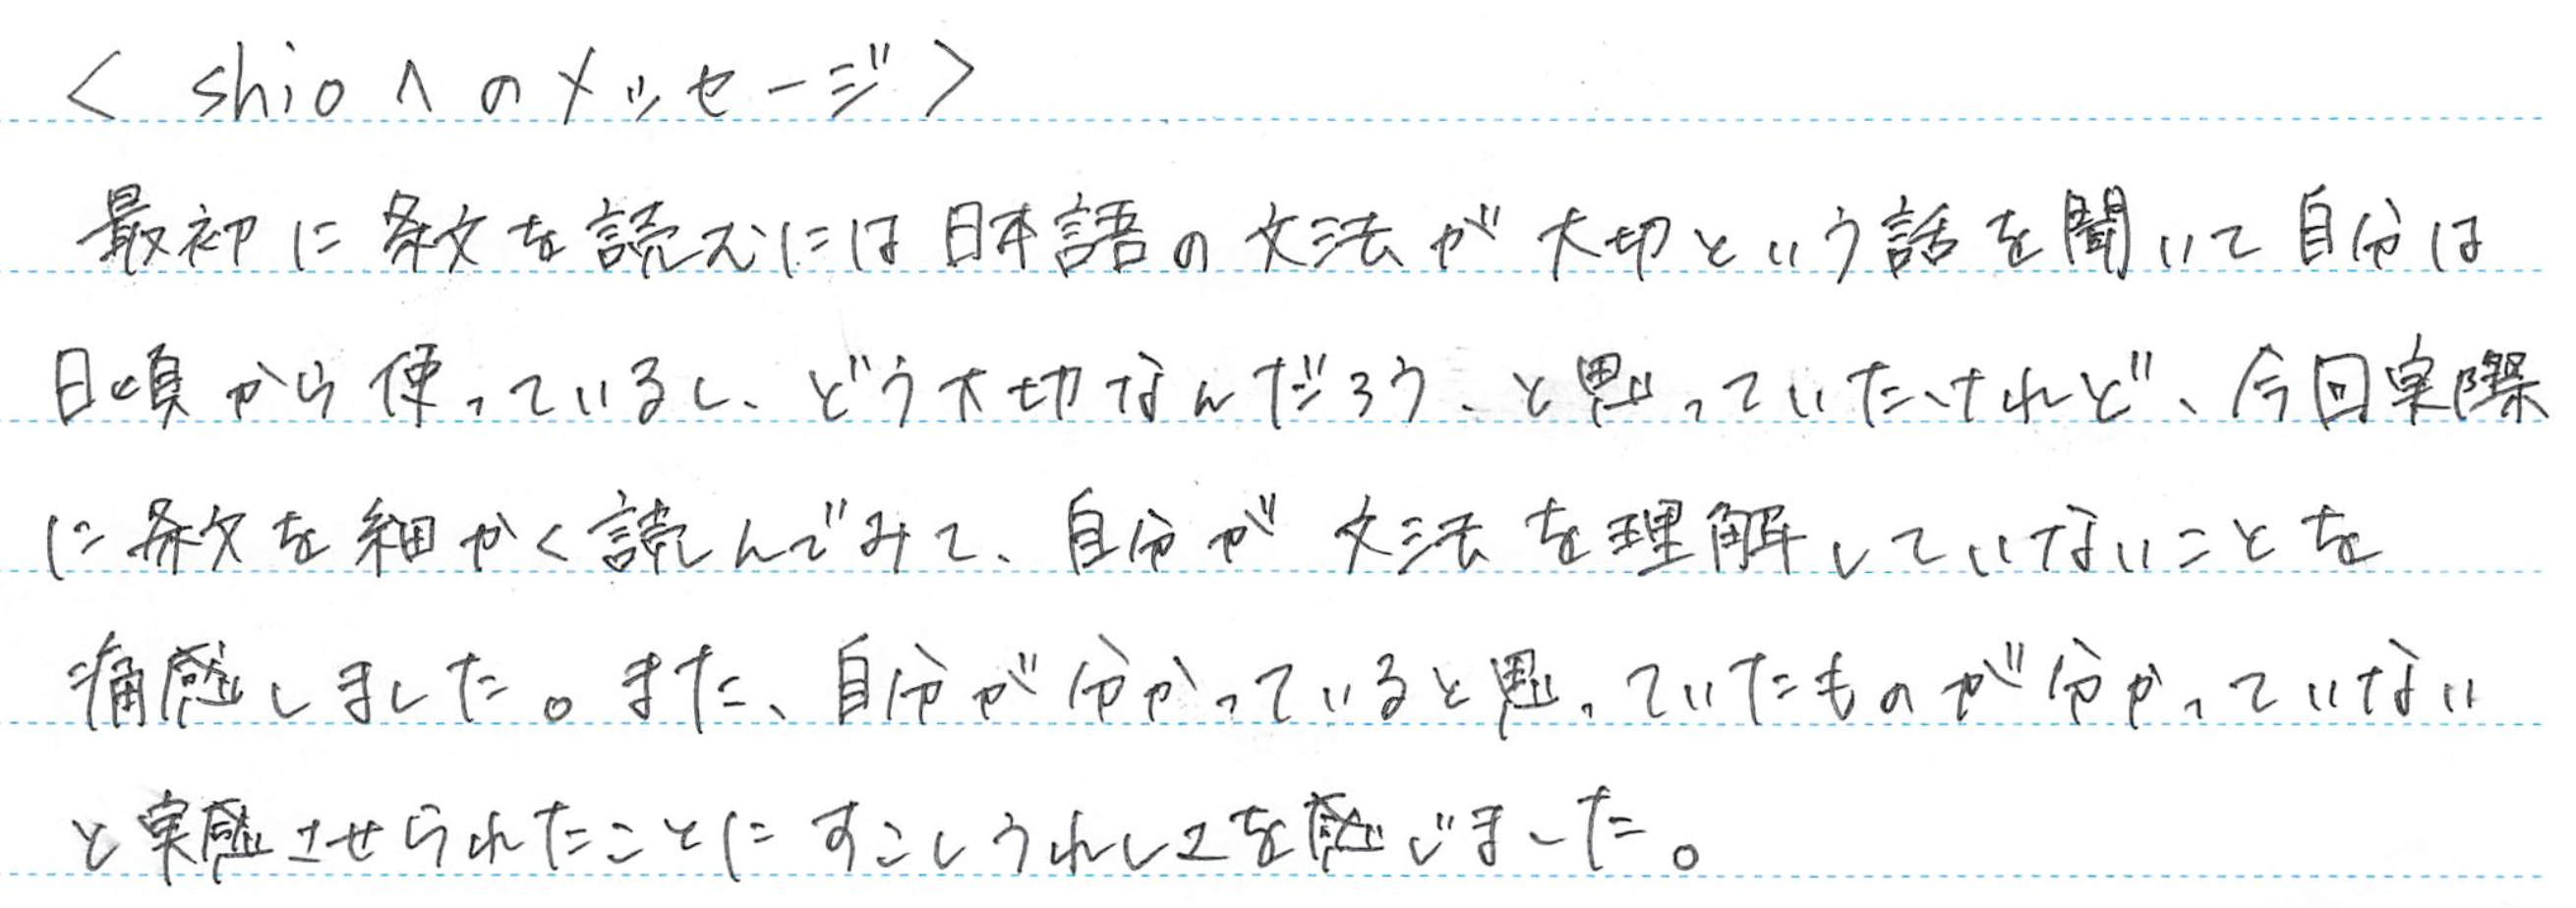 < shioへのメッセージ>
最初に条文を読むには日本語の文法が大切という話を聞いて自分は
日頃から使っているし、どう大切なんだろう、と思っていたけれど、今回実際
に条文を細かく読んでみて、自分が文法を理解していないことを
痛感しました。また、自分が分かっていると思っていたものが分かっていない
と実感させられたことにすこしうれしさを感じました。